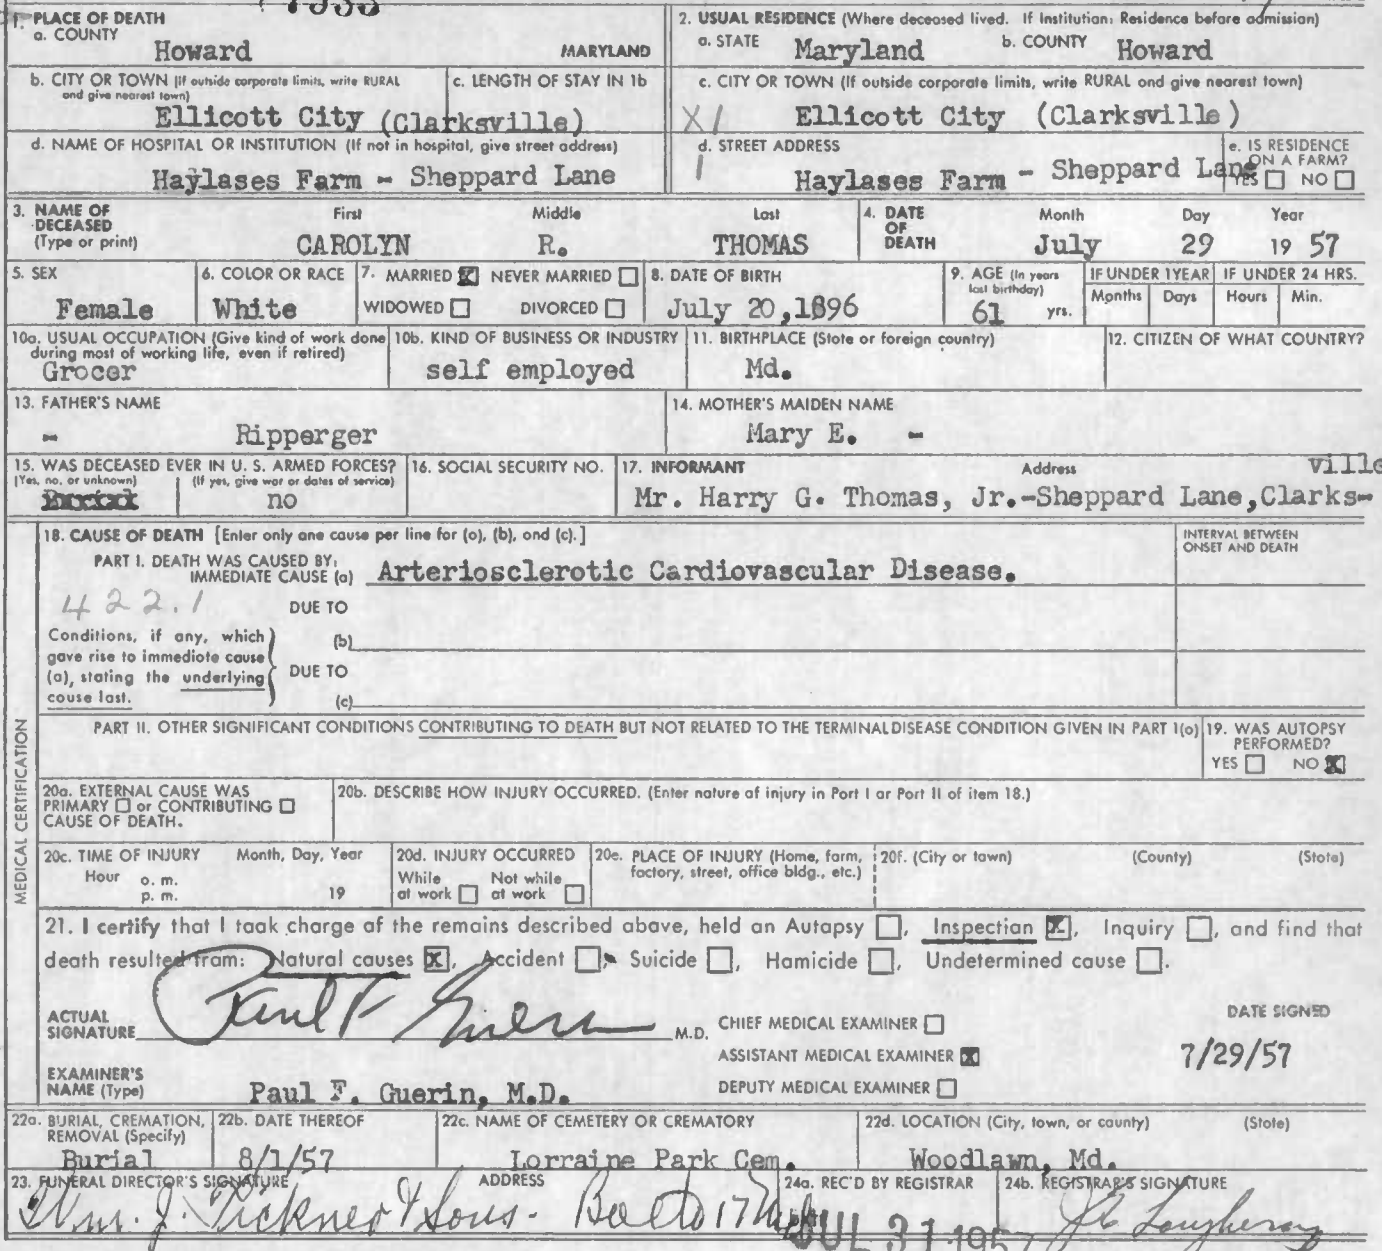 1. PLACE OF DEATH
a. COUNTY
Howard MARYLAND
2. USUAL RESIDENCE (Where deceased lived. If Institution: Residence before admission)
a. STATE Maryland b. COUNTY Howard
b. CITY OR TOWN (If outside corporate limits, write RURAL and give nearest town)
Ellicott City (Clarksville)
c. LENGTH OF STAY IN 1b
c. CITY OR TOWN (If outside corporate limits, write RURAL and give nearest town)
X1 Ellicott City (Clarksville)
d. NAME OF HOSPITAL OR INSTITUTION (If not in hospital, give street address)
Haylases Farm - Sheppard Lane
d. STREET ADDRESS
1 Haylases Farm - Sheppard Lane
e. IS RESIDENCE
ON A FARM?
YES NO
3. NAME OF
DECEASED
(Type or print)
First Middle Last
CAROLYN R. THOMAS
4. DATE
OF
DEATH
Month Day Year
July 29 19 57
5. SEX
Female
6. COLOR OR RACE
White
7. MARRIED X NEVER MARRIED
WIDOWED DIVORCED
8. DATE OF BIRTH
July 20,1896
9. AGE (In years
last birthday)
61 yrs.
IF UNDER 1YEAR
Months Days
IF UNDER 24 HRS.
Hours Min.
10a. USUAL OCCUPATION (Give kind of work done
during most of working life, even if retired)
Grocer
10b. KIND OF BUSINESS OR INDUSTRY
self employed
11. BIRTHPLACE (State or foreign country)
Md.
12. CITIZEN OF WHAT COUNTRY?
13. FATHER'S NAME
- Ripperger
14. MOTHER'S MAIDEN NAME
Mary E. -
15. WAS DECEASED EVER IN U. S. ARMED FORCES?
(Yes, no, or unknown) (If yes, give war or dates of service)
no
16. SOCIAL SECURITY NO.
17. INFORMANT Address
ville
Mr. Harry G. Thomas, Jr.-Sheppard Lane,Clarks-
MEDICAL CERTIFICATION
18. CAUSE OF DEATH [Enter only one cause per line for (a), (b), and (c).]
INTERVAL BETWEEN
ONSET AND DEATH
PART I. DEATH WAS CAUSED BY:
IMMEDIATE CAUSE (a) Arteriosclerotic Cardiovascular Disease.
422.1 DUE TO
Conditions, if any, which
gave rise to immediate cause
(a), stating the underlying
cause last.
(b)
DUE TO
(c)
PART II. OTHER SIGNIFICANT CONDITIONS CONTRIBUTING TO DEATH BUT NOT RELATED TO THE TERMINAL DISEASE CONDITION GIVEN IN PART 1(a)
19. WAS AUTOPSY
PERFORMED?
YES NO X
20a. EXTERNAL CAUSE WAS
PRIMARY or CONTRIBUTING
CAUSE OF DEATH.
20b. DESCRIBE HOW INJURY OCCURRED. (Enter nature of injury in Part I or Part II of item 18.)
20c. TIME OF INJURY Month, Day, Year
Hour a. m.
p. m. 19
20d. INJURY OCCURRED
While Not while
at work at work
20e. PLACE OF INJURY (Home, farm,
factory, street, office bldg., etc.)
20f. (City or town) (County) (State)
21. I certify that I took charge of the remains described above, held an Autopsy , Inspection X, Inquiry , and find that
death resulted from: Natural causes X, Accident , Suicide , Homicide , Undetermined cause .
ACTUAL
SIGNATURE Paul F Guerin M.D.
CHIEF MEDICAL EXAMINER
ASSISTANT MEDICAL EXAMINER X
DEPUTY MEDICAL EXAMINER
DATE SIGNED
7/29/57
EXAMINER'S
NAME (Type) Paul F. Guerin, M.D.
22a. BURIAL, CREMATION,
REMOVAL (Specify)
Burial
22b. DATE THEREOF
8/1/57
22c. NAME OF CEMETERY OR CREMATORY
Lorraine Park Cem.
22d. LOCATION (City, town, or county) (State)
Woodlawn, Md.
23. FUNERAL DIRECTOR'S SIGNATURE ADDRESS
Wm. J. Tickner & Sons. Balto 17 Md
24a. REC'D BY REGISTRAR
JUL 31 1957
24b. REGISTRAR'S SIGNATURE